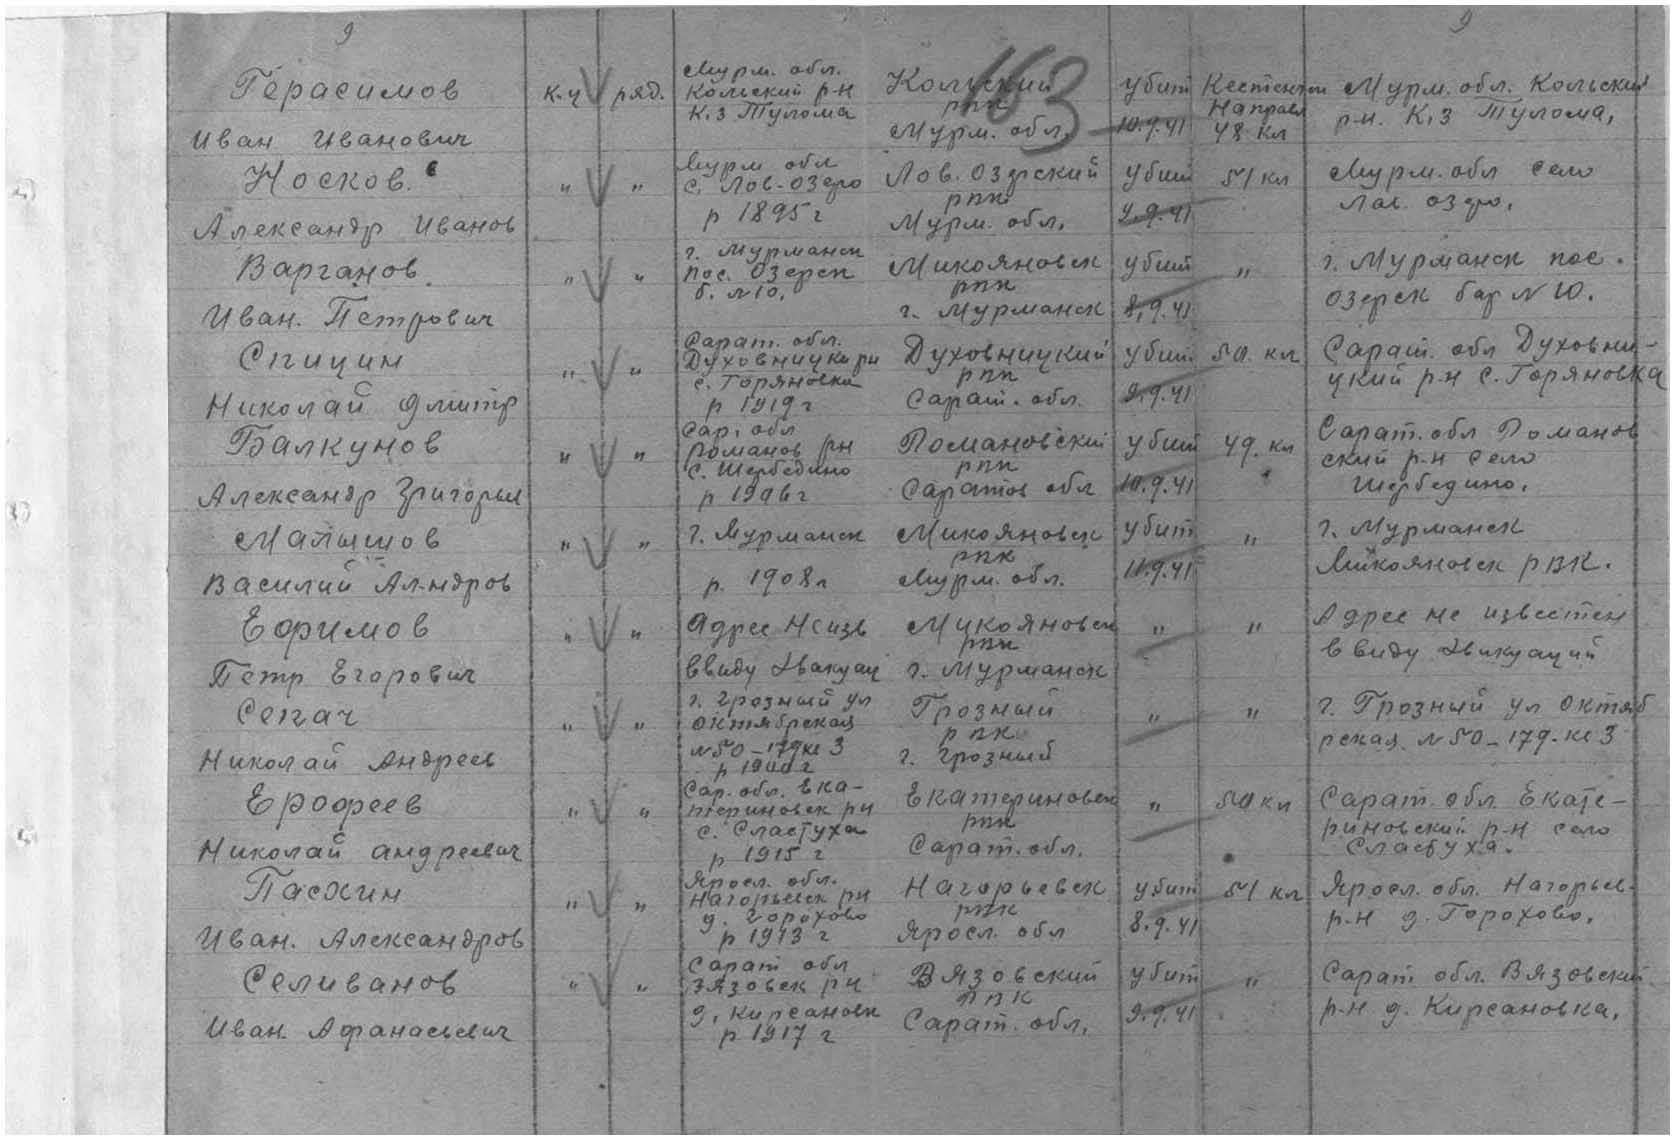 9 9
163
Герасимов
Иван Иванович
к.ч ряд.
Мурм. обл.
Кольский р-н
К.з Тулома
Кольский
рвк
Мурм. обл.
убит
10.9.41
Кестеньги
Направл
48 кл
Мурм. обл. Кольский
р-н. К.з Тулома.
Носков.
Александр Иванов
" "
Мурм обл
с. Лов-озеро
р 1895 г
Лов. озерский
рвк
Мурм. обл.
убит
9.9.41
51 кл
Мурм. обл село
Лов. озеро.
Варганов
Иван. Петрович
" "
г. Мурманск
пос. Озерск
б. № 10.
Микояновск
рвк
г. Мурманск
убит
8.9.41
"
г. Мурманск пос.
озерск бар № 10.
Спицин
Николай Дмитр
" "
Сарат. обл.
Духовницки рн
с. Горяновка
р 1919 г
Духовницкий
рвк
Сарат. обл.
убит
9.9.41
50. кл
Сарат. обл Духовни-
цкий р-н с. Горяновка
Балкунов
Александр Григорьев
" "
Сар. обл
Романов рн
с. Щербедино
р 1906 г
Романовский
рвк
Саратов обл
убит
10.9.41
49. кл
Сарат. обл Романов
ский р-н село
Щербедино.
Малышов
Василий Ал-ндров
" "
г. Мурманск
р. 1908 г
Микояновск
рвк
Мурм. обл.
убит
11.9.41
"
г. Мурманск
Микояновск РВК.
Ефимов
Петр Егорович
" "
Адрес Неизв
ввиду Эвакуац
Микояновск
рвк
г. Мурманск
"
"
Адрес не известен
ввиду Эвикуаций
Сепач
Николай Андреев
" "
г. Грозный ул
октябрская
№ 50-179 кв 3
р 1900 г
Грозный
рвк
г. Грозный
"
"
г. Грозный ул Октяб
рская № 50-179-кв 3
Ерофеев
Николай андреевич
" "
Сар. обл. Ека-
териновск рн
с. Сластуха
р 1915 г
Екатериновск
рвк
Сарат. обл.
"
50 кл
Сарат. обл. Екате-
риновский р-н село
Сластуха.
Пасхин
Иван. Александров
" "
Яросл. обл.
Нагорьевск рн
д. Горохово
р 1913 г
Нагорьевск
рвк
Яросл. обл
убит
8.9.41
51 кл
Яросл. обл. Нагорьев-
р-н д. Горохово.
Селиванов
Иван. Афанасьевич
" "
Сарат обл
Вязовск рн
д. Кирсановк
р 1917 г
Вязовский
РВК
Сарат. обл.
убит
9.9.41
"
Сарат. обл. Вязовский
р-н д. Кирсановка.